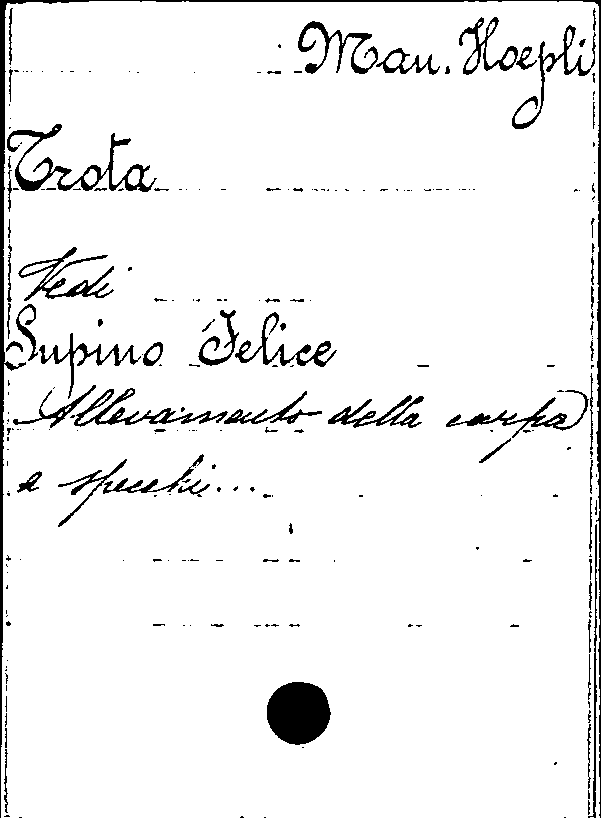 Man. Hoepli
Trota
Vedi
Supino Felice
Allevamento della carpa
a specchi...